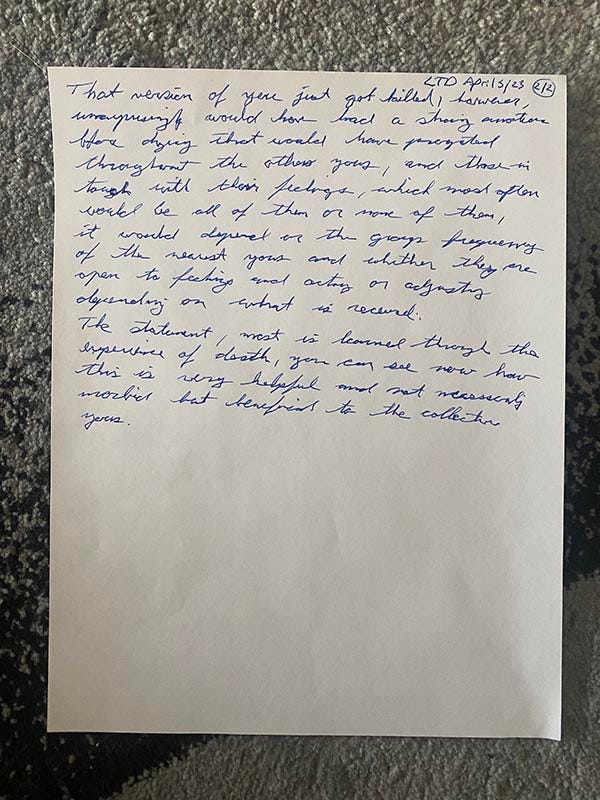 LTD April 5/23 2/2
That version of you just got killed, however,
unsurprisingly would have had a strong emotion
before dying that would have
throughout the others yous, and those in
touch with their feelings, which most often
would be all of them or none of them,
it would depend on the groups frequency
of the nearest yous and whether they are
open to feelings and acting or adjusting
depending on what is received.
The statement, most is learned through the
experience of death, you can see now how
this is very helpful and not necessarily
morbid but beneficial to the collective
yous.